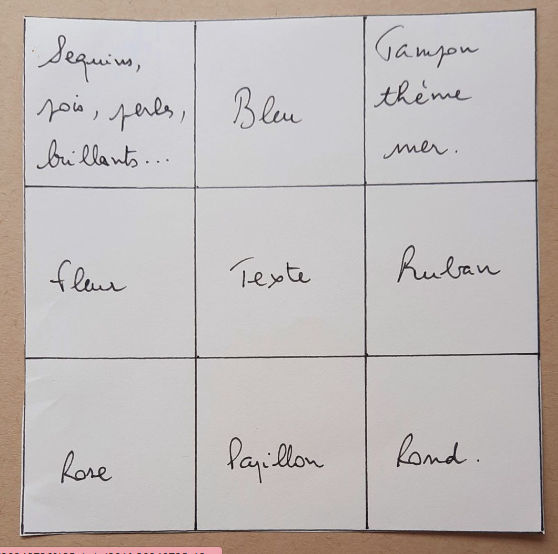 Sequins,
pois, perles,
brillants...
Bleu
Tampon
thème
mer.
fleur
Texte
Ruban
Rose
Papillon
Rond.